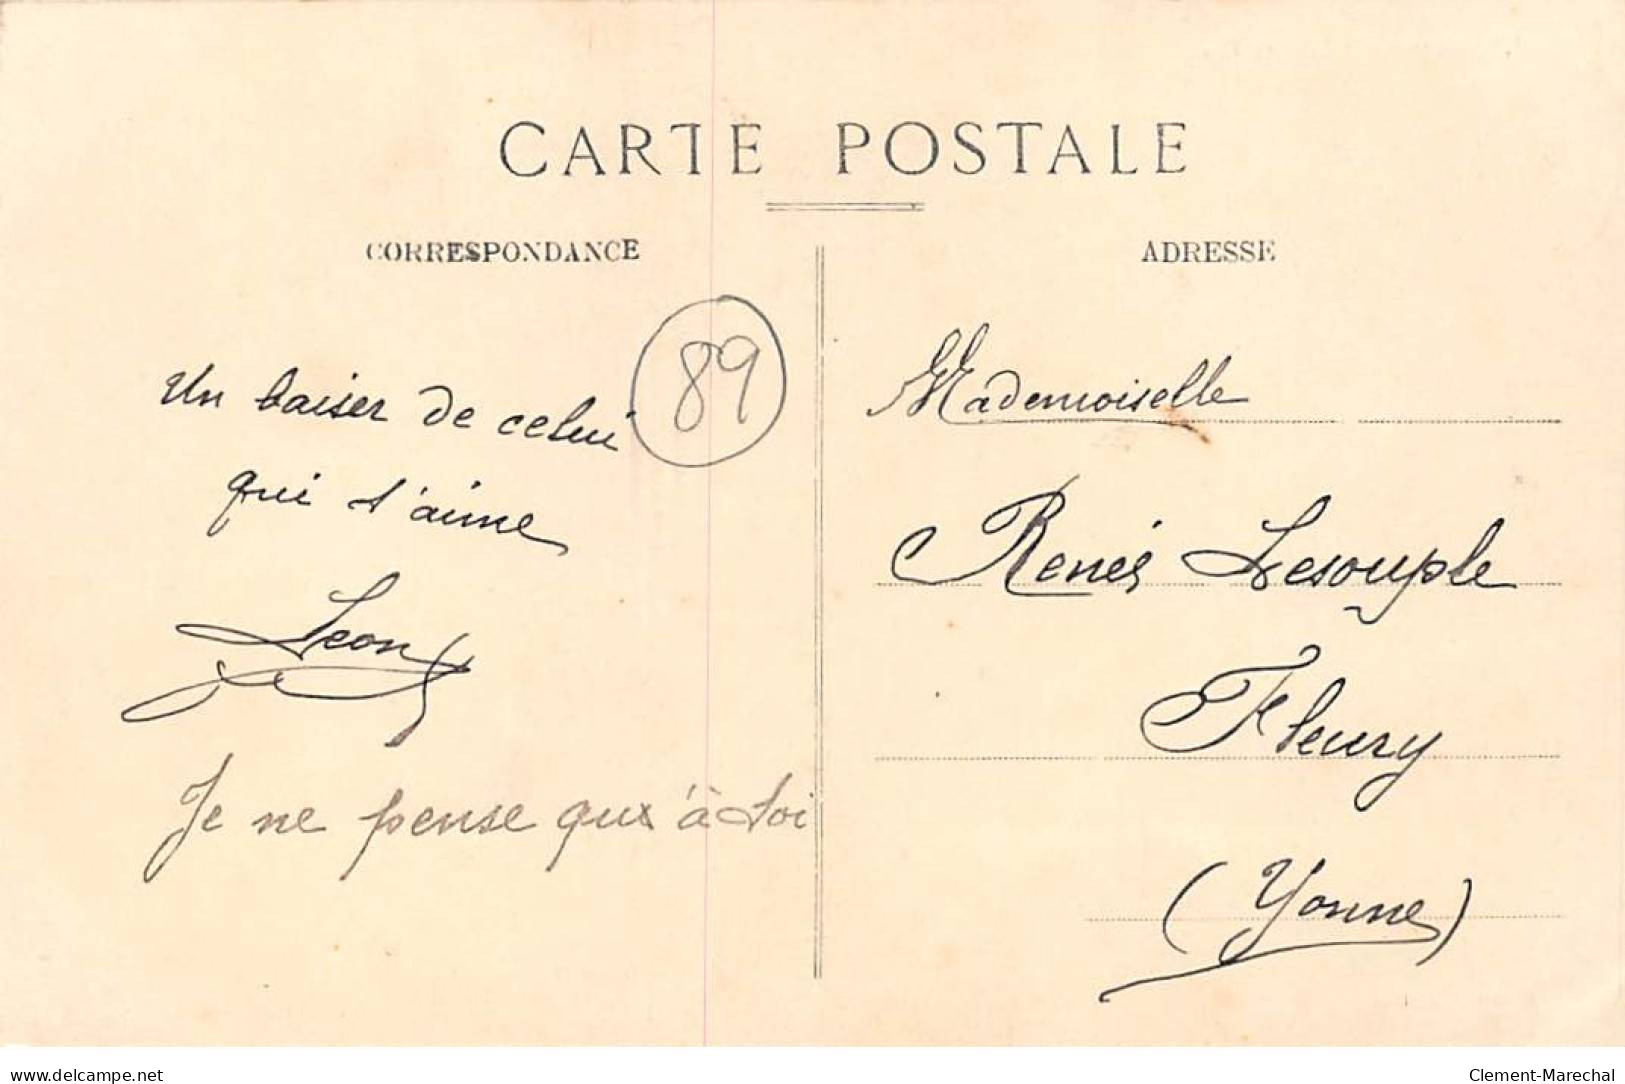 CARTE POSTALE
CORRESPONDANCE
ADRESSE
Un baiser de celui
qui t'aime
Leon
Je ne pense qu'à toi
89
Mademoiselle
Renée Lesouple
Fleury
(Yonne)
www.delcampe.net
Clement-Marechal